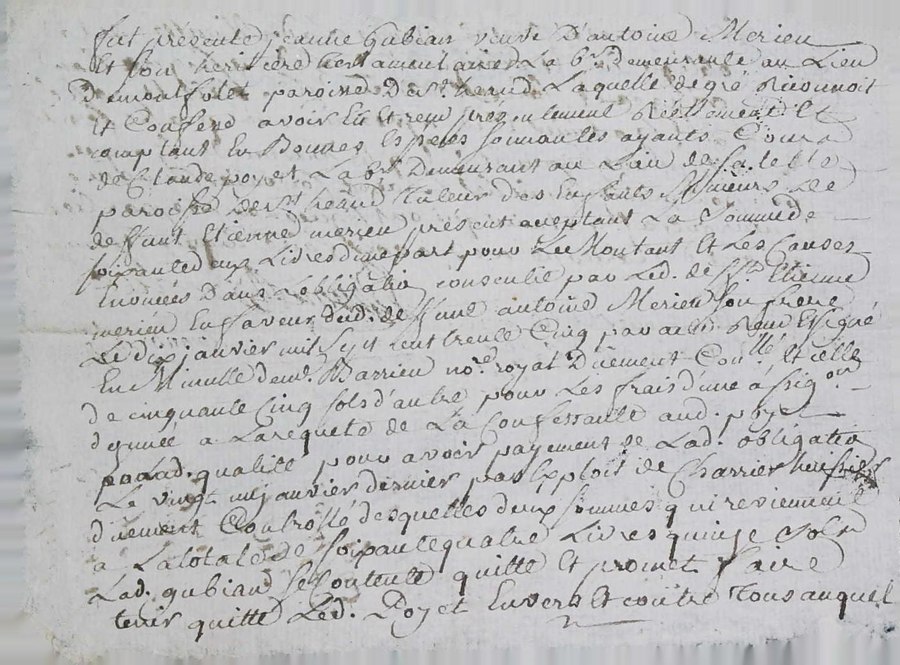 fut présente jeanne gubian veuve d'antoine Merieu
Et son heritiere testamentaire demeurante au Lieu
paroisse de st. heand Laquelle de gré Reconnoit
Et Confesse avoir Eu Et receu présentement Réellement Et
comptant En Bonnes Especes sonnantes ayants Cours
de Claude poyet Labr. Demeurant au Lieu de
paroisse de st heand Tuteur des Enfants Mineurs de
deffunt Etienne merieu présent acceptant La Somme de
soixante deux Livres d'une part pour Le Montant Et Les Causes
Enoncées Dans Lobligatio consentie par Led. defft. Etienne
merieu En faveur dud. deffunt antoine Merieu Son frere
Le dix janvier mil sept cent trente Cinq par acte Receu Et signé
En Minutte de me. Barrieu nore. royal Duement Conllé. Et celle
de cinquante Cinq sols d'autre pour Les frais d'une assigon
donnée a La requete de La Confessante aud. poyet
pa Lad. qualité pour avoir payement de Lad. obligatio
Le vingt janvier dernier par Exploit de Charrier huissier
duement Controllé desquelles deux sommes qui reviennent
a La totale de soixante quatre Livres quinze Sols
Lad. gubiand se Contente quitte Et promet faire
tenir quitte Led. Poyet Envers Et contre Tous auquel